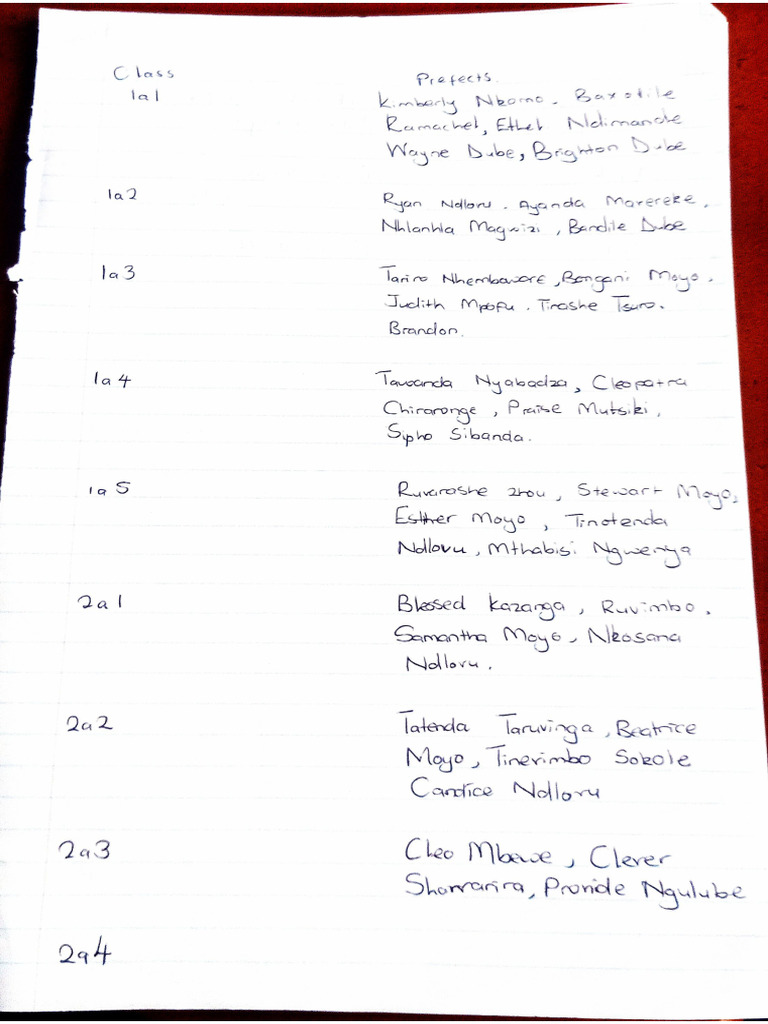 Class Prefects.
1a1 Kimberly Nkomo. Baxolile
Ramachel, Ethel Ndimande
Wayne Dube, Brighton Dube
1a2 Ryan Ndlovu. Ayanda Marereke,
Nhlanhla Magwizi, Bandile Dube
1a3 Tariro Nhembaware, Bongani Moyo.
Judith Mpofu. Tinashe Tsuro.
Brandon.
1a4 Tawanda Nyabadza, Cleopatra
Chiraronge, Praise Mutsiki,
Sipho Sibanda.
1a5 Ruvarashe Zhou, Stewart Moyo,
Esther Moyo, Tinotenda
Ndlovu, Mthabisi Ngwenya
2a1 Blessed Kazanga, Ruvimbo.
Samantha Moyo, Nkosana
Ndlovu.
2a2 Tatenda Taruvinga, Beatrice
Moyo, Tinevimbo Sokole
Candice Ndlovu
2a3 Cleo Mbewe, Clever
Shonrarira, Provide Ngulube
2a4